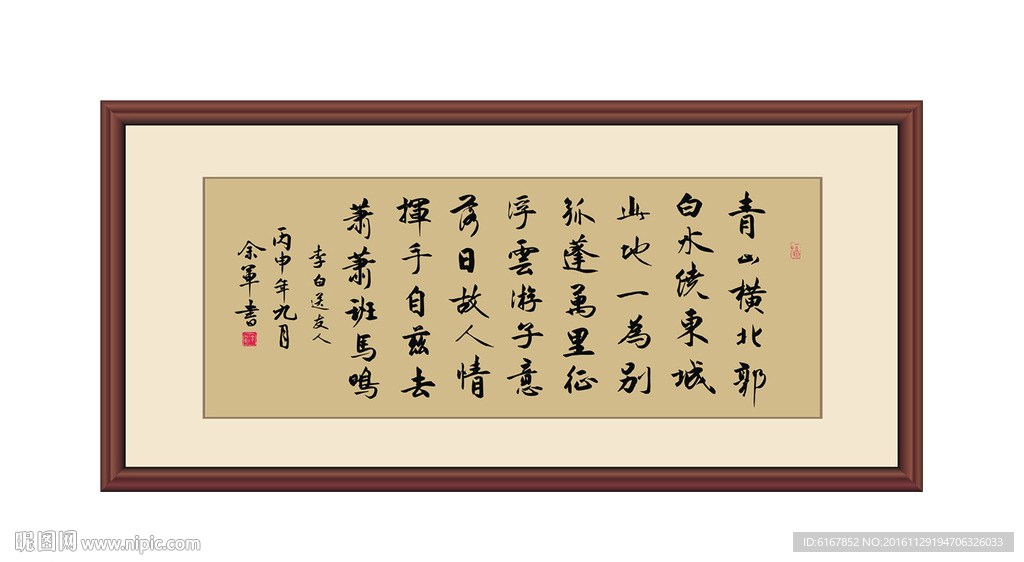 青山橫北郭
白水繞東城
此地一為別
孤蓬萬里征
浮雲游子意
落日故人情
揮手自茲去
蕭蕭班馬鳴
李白送友人
丙申年九月
余軍書
昵图网 www.nipic.com
ID:6167852 NO:20161129194706326033